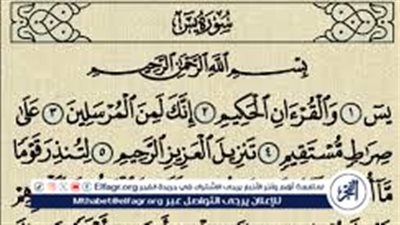 سُورَةُ يسٓ
بِسْمِ اللَّهِ الرَّحْمَٰنِ الرَّحِيمِ
يسٓ ١ وَالْقُرْءَانِ الْحَكِيمِ ٢ إِنَّكَ لَمِنَ الْمُرْسَلِينَ ٣ عَلَىٰ
صِرَاطٍ مُّسْتَقِيمٍ ٤ تَنزِيلَ الْعَزِيزِ الرَّحِيمِ ٥ لِتُنذِرَ قَوْمًا
مَّا أُ
لمتابعة أهم وآخر الأخبار يرجى الاشتراك في جريدة الفجر Elfagr.org
للإعلان يرجى التواصل عبر Mthabet@elfagr.org
الفجر